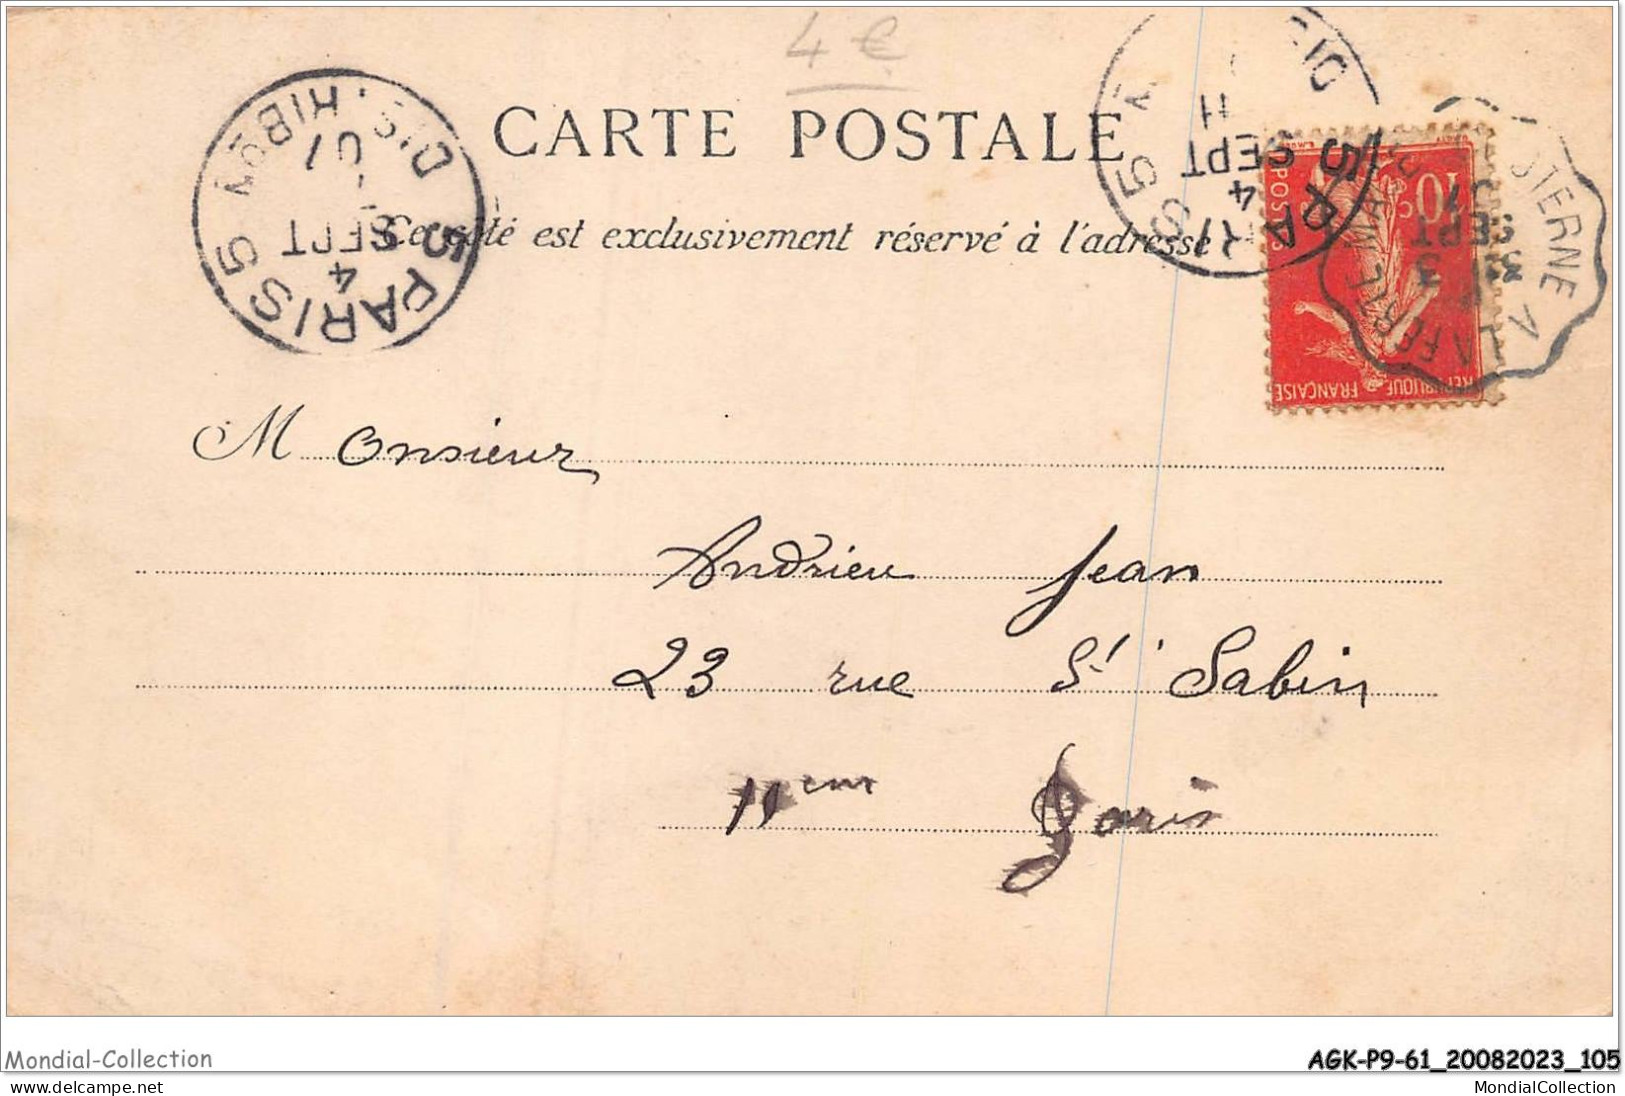 4 €
CARTE POSTALE
Ce côté est exclusivement réservé à l'adresse
PARIS 5
4
SEPT
07
DISTRIBUON
PARIS 5
4
SEPT
11
STERNE A LA FERTE MA
3
SEPT
07
10 c
POSTES
REPUBLIQUE FRANÇAISE
Monsieur
Andrieu Jean
23 rue St Sabin
11em Paris
Mondial-Collection
AGK-P9-61_20082023_105
www.delcampe.net
MondialCollection